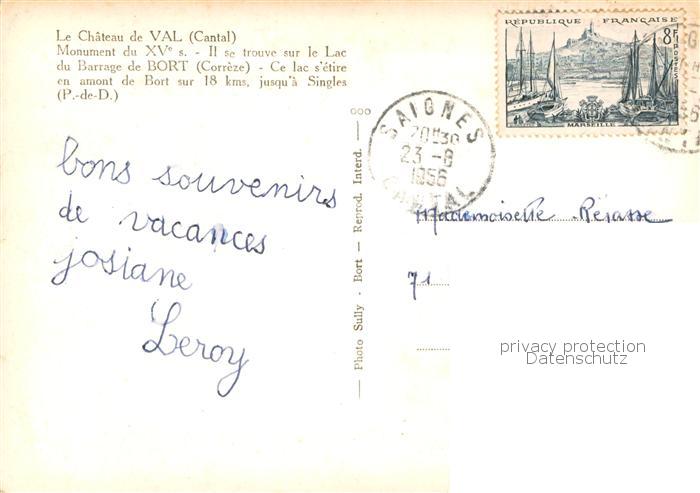 Le Château de VAL (Cantal)
Monument du XVe s. - Il se trouve sur le Lac
du Barrage de BORT (Corrèze) - Ce lac s'étire
en amont de Bort sur 18 kms, jusqu'à Singles
(P.-de-D.)
bons souvenirs
de vacances
josiane
Leroy
— Photo Sully - Bort — Reprod. Interd. —
RÉPUBLIQUE FRANÇAISE
8F
POSTES
MARSEILLE
SAIGNES
20H30
23-8
1956
CANTAL
Mademoiselle
71
privacy protection
Datenschutz